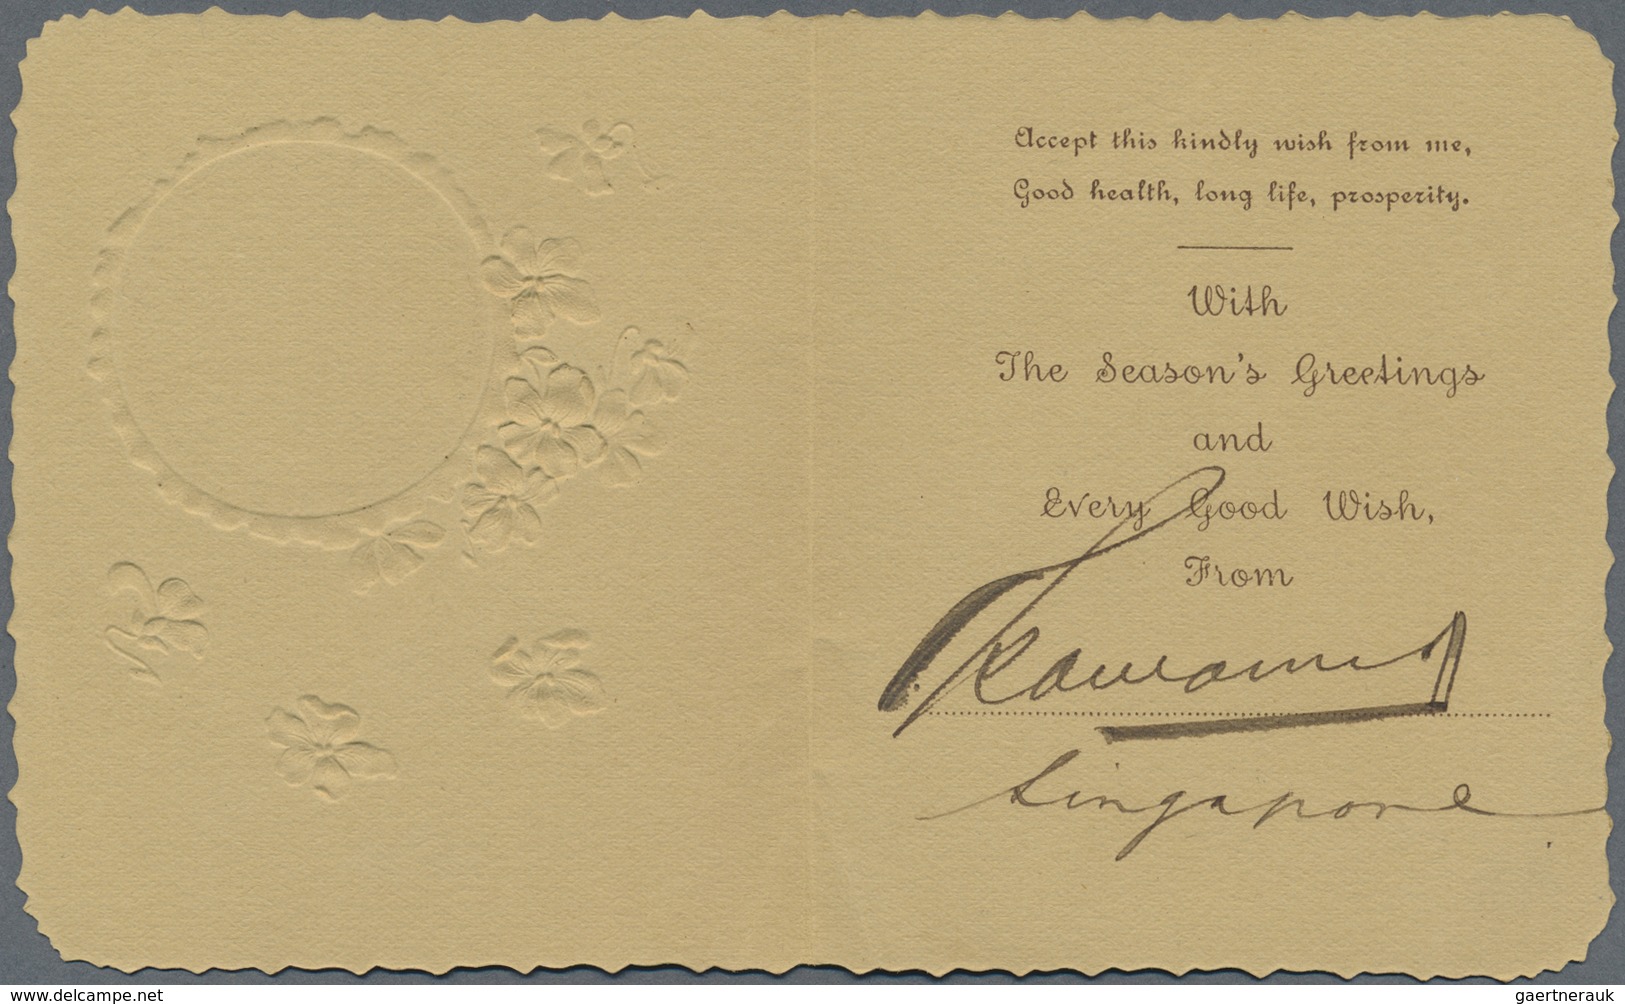 Accept this kindly wish from me,
Good health, long life, prosperity.
With
The Season's Greetings
and
Every Good Wish,
From
Singapore
www.delcampe.net
gaertnerauk